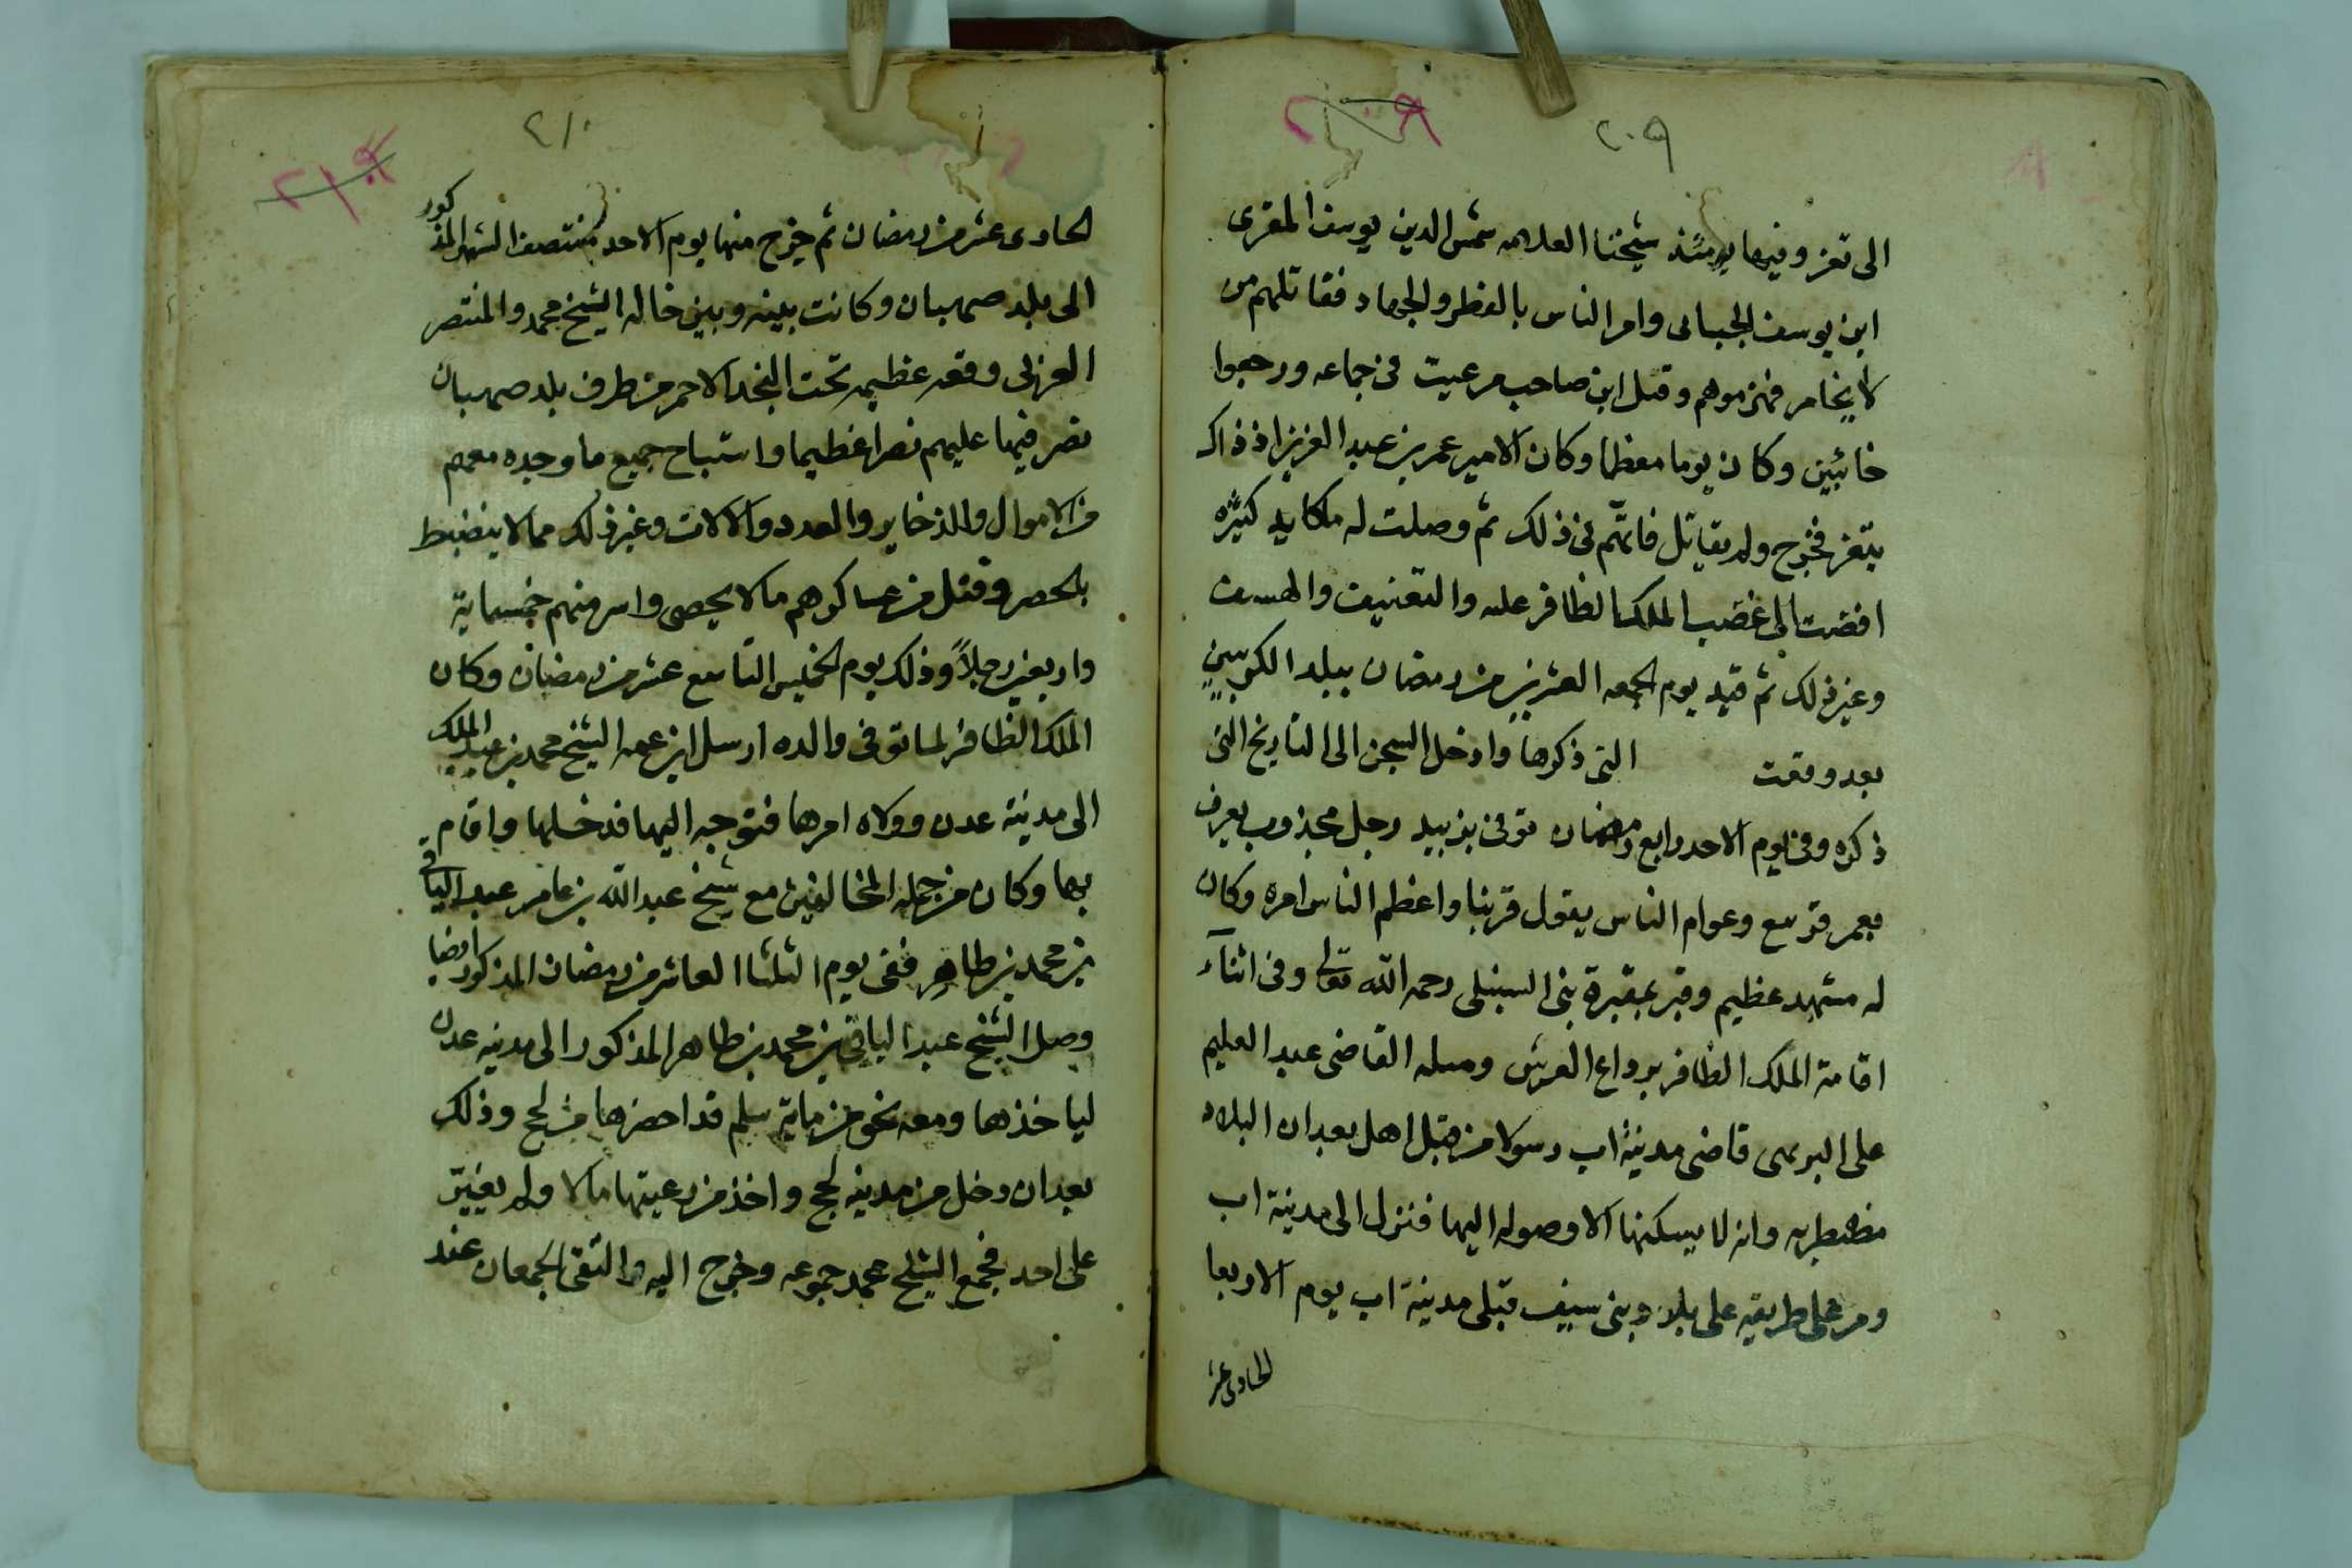 ٢٠٩
الى تعز وفيها يومئذ شيخنا العلامه شمس الدين يوسف المقرى
ابن يوسف الجبائى وامر الناس بالفطر والجهاد فقاتلهم من
لا يخامر فهزموهم وقتل ابن صاحب مرعيت فى جماعه ورجعوا
خائبين وكان يوما معظما وكان الامير عمر بن عبد العزيز اذ ذاك
بتعز فخرج ولم يقاتل فاتهم فى ذلك ثم وصلت له مكايد كثيره
افضت الى غضب الملك الظافر عليه والتعنيف
وغير ذلك ثم قيد يوم الجمعه العشرين من رمضان ببلد
بعد وقعت التى ذكرها وادخل السجن الى التاريخ التى
ذكره وفى يوم الاحد رابع رمضان توفى بزبيد رجل مجذوب يعرف
بعمر وعوام الناس يقول واعظم الناس امره وكان
له مشهد عظيم وقبر بمقبرة بنى رحمه الله تعالى وفى اثناء
اقامة الملك الظافر برداع العرش وصله القاضى عبد العليم
على قاضى مدينة اب رسولا من قبل اهل بعدان البلاد
مضطربه وانه لا يسكنها الا وصوله اليها فنزل الى مدينة اب
ومر على طريقه على بلاد بنى سيف قبلى مدينة اب يوم الاربعا
الحادى عشر
٢١٠
الحادى عشر من رمضان ثم خرج منها يوم الاحد منتصف الشهر المذكور
الى بلد صهبان وكانت بينه وبين خاله الشيخ محمد والمنتصر
وقعه عظيمه تحت النجد الاحمر من طرف بلد صهبان
نصر فيها عليهم نصرا عظيما واستباح جميع ما وجده معهم
من الاموال والذخاير والعدد والالات وغير ذلك مما لا ينضبط
بالحصر وقتل من عساكرهم ما لا يحصى واسر منهم خمسماية
واربعين رجلاً وذلك يوم الخميس التاسع عشر من رمضان وكان
الملك الظافر لما توفى والده ارسل ابن عمه الشيخ محمد بن عبد الملك
الى مدينة عدن وولاه امرها فتوجه اليها فدخلها واقام
بها وكان من جمله المخالفين مع شيخ عبد الله بن عامر عبد الباقى
بن محمد بن طاهر ففى يوم الثلثا العاشر من رمضان المذكور ايضا
وصل الشيخ عبد الباقى بن محمد بن طاهر المذكور الى مدينه عدن
لياخذها ومعه نحو من ماية سلم قد احضرها من لحج وذلك
بعد ان دخل من مدينه لحج واخذ من رعيتها مالا ولم يغيّر
على احد فجمع الشيخ محمد جموعه وخرج اليه والتقى الجمعان عند